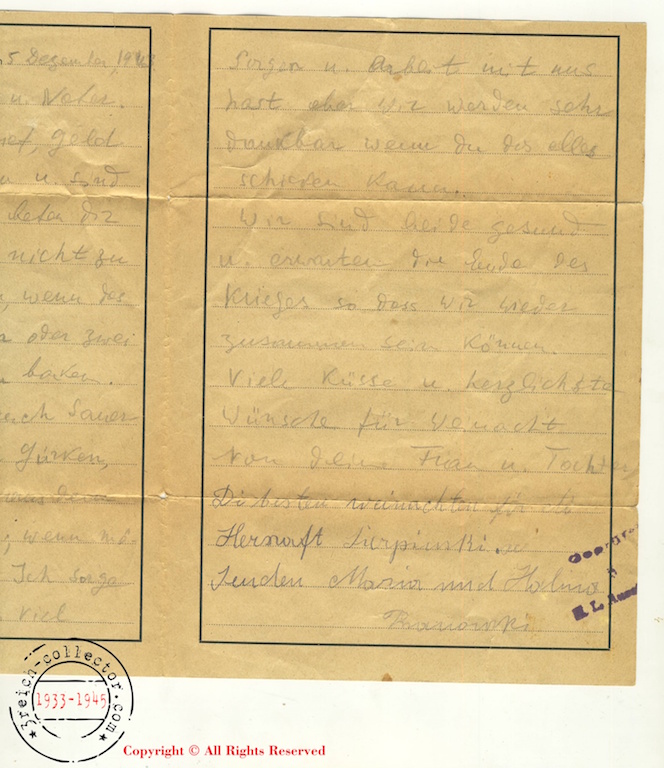 5 Dezember, 194
u. Vater.
Geld
u. sind
beten dir
nicht zu
, wenn das
oder zwei
backen.
auch Sauer
Gurken,
; wenn mö-
Ich sorge
viel
Sorgen u. Arbeit mit uns
hast aber wir werden sehr
dankbar wenn du das alles
schicken kann.
Wir sind beide gesund
u. erwarten die Ende des
Krieges so dass wir wieder
zusammen sein können.
Viele Küsse u. herzlichste
Wünsche für Weinacht
von deine Frau u. Tochter,
Die besten weinachten für
senden Maria und Halina
Geprüft
3reich-collector.com
1933-1945
Copyright © All Rights Reserved